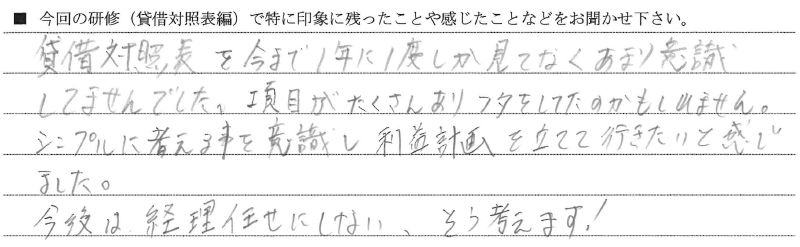 ■ 今回の研修（貸借対照表編）で特に印象に残ったことや感じたことなどをお聞かせ下さい。
貸借対照表を今まで1年に1度しか見てなくあまり意識
してませんでした。項目がたくさんありフタをしてたのかもしれません。
シンプルに考える事を意識し利益計画を立てて行きたいと感じ
ました。
今後は、経理任せにしない、そう考えます!